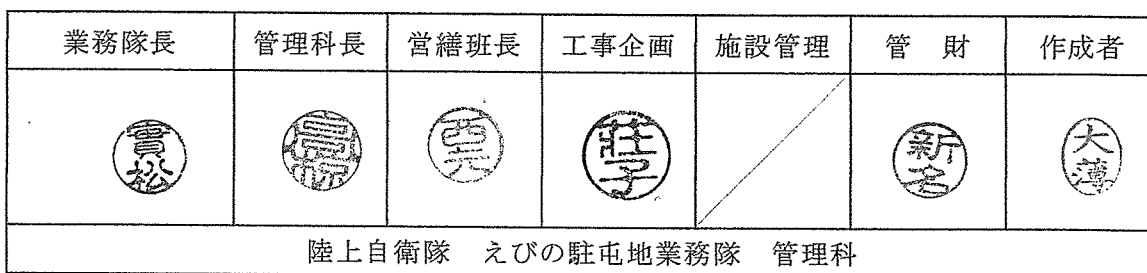 業務隊長 管理科長 営繕班長 工事企画 施設管理 管 財 作成者
實松 高標 西元 莊子 新名 大薄
陸上自衛隊 えびの駐屯地業務隊 管理科